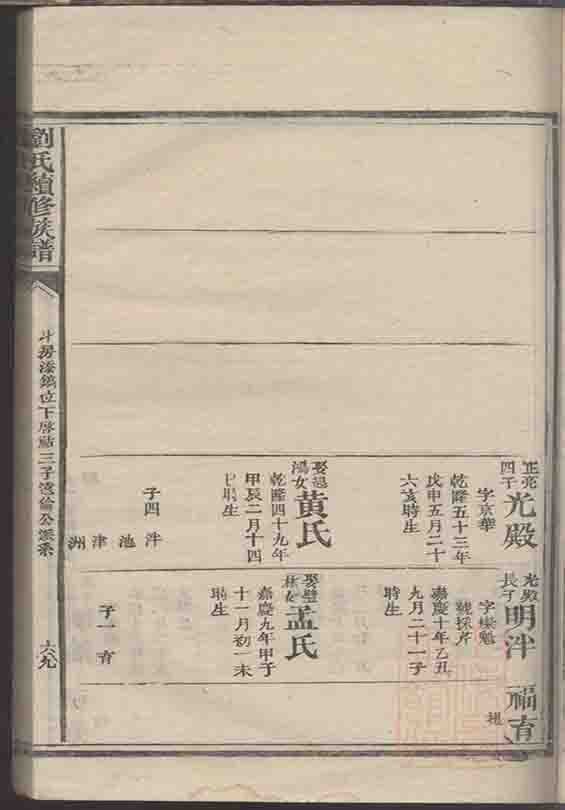 正亮
四子
光殿
字京華
乾隆五十三年
戊申五月二十
六亥時生
娶
鴻女
黄氏
乾隆四十九年
甲辰二月十四
時生
子四 泮
池
津
洲
光殿
長子
明泮
號採芹
嘉慶十年乙丑
九月二十一子
時生
娶
孟氏
嘉慶九年甲子
十一月初一未
時生
子一 育
福育
劉氏續修族譜
三子
公派系
六九